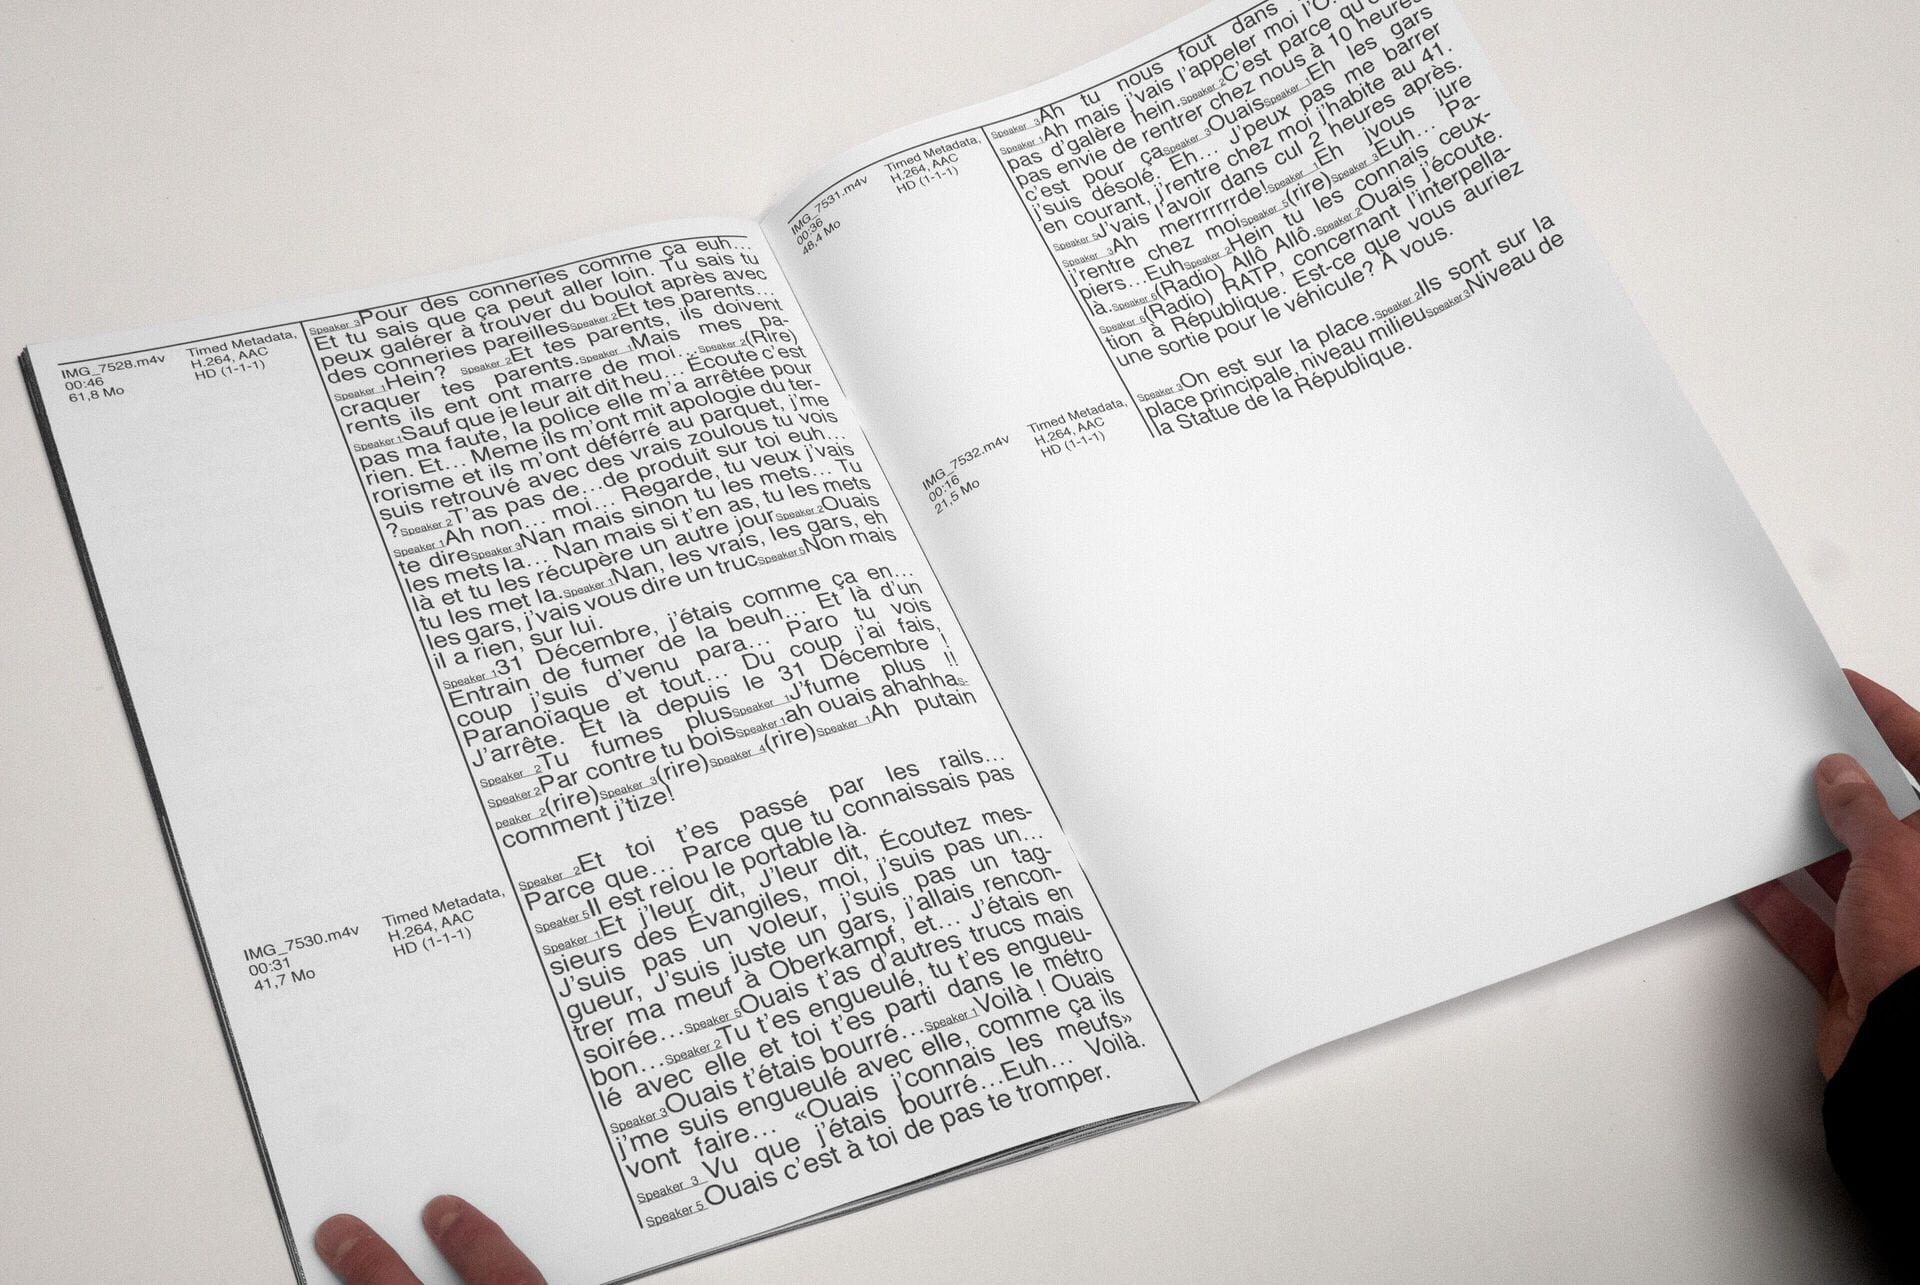 IMG_7528.m4v
00:46
61,8 Mo
Timed Metadata,
H.264, AAC
HD (1-1-1)
Speaker 3Pour des conneries comme ça euh…
Et tu sais que ça peut aller loin. Tu sais tu
peux galérer à trouver du boulot après avec
des conneries pareillesSpeaker 2Et tes parents…
Speaker 1Hein? Speaker 2Et tes parents, ils doivent
craquer tes parents.Speaker 1Mais mes pa-
rents ils ent ont marre de moi…Speaker 2(Rire)
Speaker 1Sauf que je leur ait dit heu… Écoute c'est
pas ma faute, la police elle m'a arrêtée pour
rien. Et… Meme ils m'ont mit apologie du ter-
rorisme et ils m'ont déférré au parquet, j'me
suis retrouvé avec des vrais zoulous tu vois
?Speaker 2T'as pas de…de produit sur toi euh…
Speaker 1Ah non… moi… Regarde, tu veux j'vais
te direSpeaker 3Nan mais sinon tu les mets… Tu
les mets la… Nan mais si t'en as, tu les mets
là et tu les récupère un autre jourSpeaker 2Ouais
tu les met la.Speaker 1Nan, les vrais, les gars, eh
les gars, j'vais vous dire un trucSpeaker 5Non mais
il a rien, sur lui.
Speaker 131 Décembre, j'étais comme ça en…
Entrain de fumer de la beuh… Et là d'un
coup j'suis d'venu para… Paro tu vois
Paranoïaque et tout… Du coup j'ai fais,
J'arrête. Et là depuis le 31 Décembre !
Speaker 2Tu fumes plusSpeaker 1J'fume plus !!
Speaker 2Par contre tu boisSpeaker 1ah ouais ahahhaS-
peaker 2(rire)Speaker 3(rire)Speaker 4(rire)Speaker 1Ah putain
comment j'tize!
IMG_7530.m4v
00:31
41,7 Mo
Timed Metadata,
H.264, AAC
HD (1-1-1)
Speaker 2Et toi t'es passé par les rails…
Parce que… Parce que tu connaissais pas
Speaker 5Il est relou le portable là.
Speaker 1Et j'leur dit, J'leur dit, Écoutez mes-
sieurs des Évangiles, moi, j'suis pas un…
J'suis pas un voleur, j'suis pas un tag-
gueur, J'suis juste un gars, j'allais rencon-
trer ma meuf à Oberkampf, et… J'étais en
soirée…Speaker 5Ouais t'as d'autres trucs mais
bon…Speaker 2Tu t'es engueulé, tu t'es engueu-
lé avec elle et toi t'es parti dans le métro
Speaker 3Ouais t'étais bourré…Speaker 1Voilà ! Ouais
j'me suis engueulé avec elle, comme ça ils
vont faire… «Ouais j'connais les meufs»
Speaker 3 Vu que j'étais bourré…Euh… Voilà.
Speaker 5Ouais c'est à toi de pas te tromper.
IMG_7531.m4v
00:36
48,4 Mo
Timed Metadata,
H.264, AAC
HD (1-1-1)
Speaker 3Ah tu nous fout dans
Speaker 1Ah mais j'vais l'appeler moi
pas d'galère hein.Speaker 2C'est parce
pas envie de rentrer chez nous à 10 heures
c'est pour çaSpeaker 3OuaisSpeaker 1Eh les gars
j'suis désolé. Eh… J'peux pas me barrer
en courant, j'rentre chez moi j'habite au 41.
Speaker 5J'vais l'avoir dans cul 2 heures après.
Speaker 3Ah merrrrrrde!Speaker 1Eh jvous jure
j'rentre chez moiSpeaker 5(rire)Speaker 3Euh… Pa-
piers…EuhSpeaker 2Hein tu les connais ceux-
là.Speaker 6(Radio) Allô Allô.Speaker 2Ouais j'écoute.
Speaker 6(Radio) RATP, concernant l'interpella-
tion à République. Est-ce que vous auriez
une sortie pour le véhicule? À vous.
IMG_7532.m4v
00:16
21,5 Mo
Timed Metadata,
H.264, AAC
HD (1-1-1)
Speaker 3On est sur la place.Speaker 2Ils sont sur la
place principale, niveau milieuSpeaker3Niveau de
la Statue de la République.